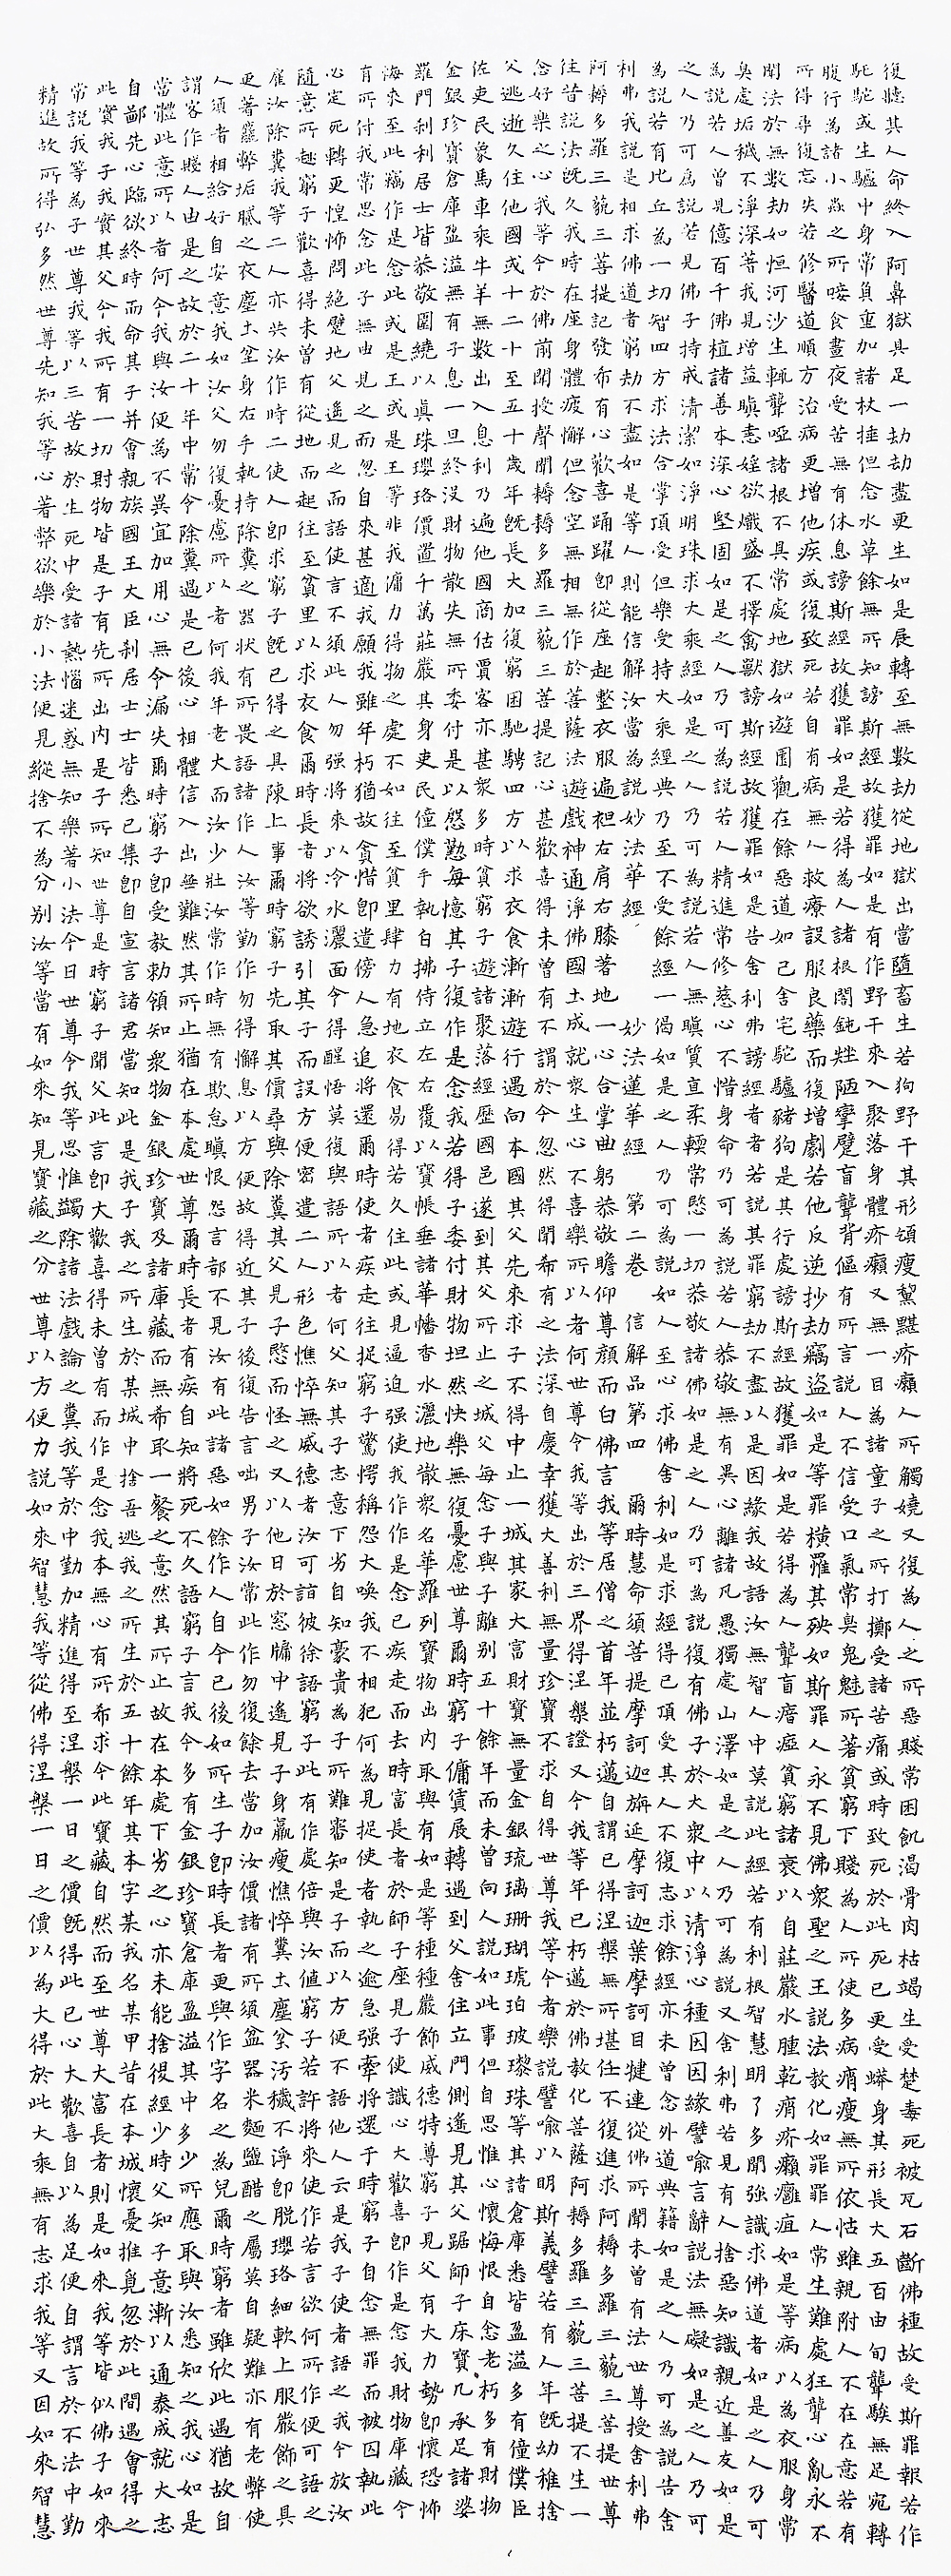 復聽其人命終入阿鼻獄具足一劫劫盡更生如是展轉至無數劫從地獄出當墮畜生若狗野干其形頷瘦黧黮疥癩人所觸嬈又復為人之所惡賤常困飢渴骨肉枯竭生受楚毒死被瓦石斷佛種故受斯罪報若作
駝或生驢中身常負重加諸杖捶但念水草餘無所知謗斯經故獲罪如是有作野干來入聚落身體疥癩又無一目為諸童子之所打擲受諸苦痛或時致死於此死已更受蟒身其形長大五百由旬聾騃無足宛轉
腹行為諸小虫之所唼食晝夜受苦無有休息謗斯經故獲罪如是若得為人諸根闇鈍矬陋攣躄盲聾背傴有所言說人不信受口氣常臭鬼魅所著貧窮下賤為人所使多病痟瘦無所依怙雖親附人不在在意若有
所得尋復忘失若修醫道順方治病更增他疾或復致死若自有病無人救療設服良藥而復增劇若他反逆抄劫竊盜如是等罪橫羅其殃如斯罪人永不見佛眾聖之王說法教化如罪罪人常生難處狂聾心亂永不
聞法於無數劫如恒河沙生輒聾啞諸根不具常處地獄如遊園觀在餘惡道如己舍宅駝驢豬狗是其行處謗斯經故獲罪如是若得為人聾盲瘖瘂貧窮諸衰以自莊嚴水腫乾痟疥癩癰疽如是等病以為衣服身常
臭處垢穢不淨深著我見增益瞋恚婬欲熾盛不擇禽獸謗斯經故獲罪如是告舍利弗謗經者者若說其罪窮劫不盡以是因緣我故語汝無智人中莫說此經若有利根智慧明了多聞強識求佛道者如是之人乃可
為說若人曾見億百千佛植諸善本深心堅固如是之人乃可為說若人精進常修慈心不惜身命乃可為說若人恭敬無有異心離諸凡愚獨處山澤如是之人乃可為說又舍利弗若見有人捨惡知識親近善友如是
之人乃可為說若見佛子持戒清潔如淨明珠求大乘經如是之人乃可為說若人無瞋質直柔輭常愍一切恭敬諸佛如是之人乃可為說復有佛子於大眾中以清淨心種因因緣譬喻言辭說法無礙如是之人乃可
為說若有比丘為一切智四方求法合掌頂受但樂受持大乘經典乃至不受餘經一偈如是之人乃可為說如人至心求佛舍利如是求經得已頂受其人不復志求餘經亦未曾念外道典籍如是之人乃可為說告舍
利弗我說是相求佛道者窮劫不盡如是等人則能信解汝當為說妙法華經 妙法蓮華經 第二卷 信解品第四 爾時慧命須菩提摩訶迦旃延摩訶迦葉摩訶目犍連從佛所聞未曾有法世尊授舍利弗
阿耨多羅三藐三菩提記發希有心歡喜踊躍即從座起整衣服遍袒右肩右膝著地一心合掌曲躬恭敬瞻仰尊顏而白佛言我等居僧之首年並朽邁自謂已得涅槃無所堪任不復進求阿耨多羅三藐三菩提世尊
往昔說法既久我時在座身體疲懈但念空無相無作於菩薩法遊戲神通淨佛國土成就眾生心不喜樂所以者何世尊令我等出於三界得涅槃證又今我等年已朽邁於佛教化菩薩阿耨多羅三藐三菩提不生一
念好樂之心我等今於佛前聞授聲聞耨耨多羅三藐三菩提記心甚歡喜得未曾有不謂於今忽然得聞希有之法深自慶幸獲大善利無量珍寶不求自得世尊我等今者樂說譬喻以明斯義譬若有人年既幼稚捨
父逃逝久住他國或十二十至五十歲年既長大加復窮困馳騁四方以求衣食漸漸遊行遇向本國其父先來求子不得中止一城其家大富財寶無量金銀琉璃珊瑚琥珀玻瓈珠等其諸倉庫悉皆盈溢多有僮僕臣
佐吏民象馬車乘牛羊無數出入息利乃遍他國商估賈客亦甚眾多時貧窮子遊諸聚落經歷國邑遂到其父所止之城父每念子與子離別五十餘年而未曾向人說如此事但自思惟心懷悔恨自念老朽多有財物
金銀珍寶倉庫盈溢無有子息一旦終沒財物散失無所委付是以慇懃每憶其子復作是念我若得子委付財物坦然快樂無復憂慮世尊爾時窮子傭賃展轉遇到父舍住立門側遙見其父踞師子床寶几承足諸婆
羅門刹利居士皆恭敬圍繞以真珠瓔珞價置千萬莊嚴其身吏民僮僕手執白拂侍立左右覆以寶帳垂諸華幡香水灑地散眾名華羅列寶物出內取與有如是等種種嚴飾威德特尊窮子見父有大力勢即懷恐怖
悔來至此竊作是念此或是王或是王等非我傭力得物之處不如往至貧里肆力有地衣食易得若久住此或見逼迫強使我作作是念已疾走而去時富長者於師子座見子便識心大歡喜即作是念我財物庫藏今
有所付我常思念此子無由見之而忽自來甚適我願我雖年朽猶故貪惜即遣傍人急追將還爾時使者疾走往捉窮子驚愕稱怨大喚我不相犯何為見捉使者執之逾急強牽將還于時窮子自念無罪而被囚執此
心定死轉更惶怖悶絕躄地父遙見之而語使言不須此人勿強將來以冷水灑面令得醒悟莫復與語所以者何父知其子志意下劣自知豪貴為子所難審知是子而以方便不語他人云是我子使者語之我今放汝
隨意所趣窮子歡喜得未曾有從地而起往至貧里以求衣食爾時長者將欲誘引其子而設方便密遣二人形色憔悴無威德者汝可詣彼徐語窮子此有作處倍與汝值窮子若許將來使作若言欲何所作便可語之
雇汝除糞我等二人亦共汝作時二使人即求窮子既已得之具陳上事爾時窮子先取其價尋與除糞其父見子愍而怪之又以他日於窓牖中遙見子身羸瘦憔悴糞土塵坌汙穢不淨即脫瓔珞細軟上服嚴飾之具
更著麤弊垢膩之衣塵土坌身右手執持除糞之器狀有所畏語諸作人汝等勤作勿得懈息以方便故得近其子後復告言咄男子汝常此作勿復餘去當加汝價諸有所須盆器米麵鹽醋之屬莫自疑難亦有老弊使
人須者相給好自安意我如汝父勿復憂慮所以者何我年老大而汝少壯汝常作時無有欺怠瞋恨怨言都不見汝有此諸惡如餘作人自今已後如所生子即時長者更與作字名之為兒爾時窮者雖欣此遇猶故自
謂客作賤人由是之故於二十年中常令除糞過是已後心相體信入出無難然其所止猶在本處世尊爾時長者有疾自知將死不久語窮子言我今多有金銀珍寶倉庫盈溢其中多少所應取與汝悉知之我心如是
當體此意所以者何今我與汝便為不異宜加用心無令漏失爾時窮子即受教勅領知眾物金銀珍寶及諸庫藏而無希取一餐之意然其所止故在本處下劣之心亦未能捨復經少時父知子意漸以通泰成就大志
自鄙先心臨欲終時而命其子并會親族國王大臣刹居士士皆悉已集即自宣言諸君當知此是我子我之所生於某城中捨吾逃我之所生於五十餘年其本字某我名某甲昔在本城懷憂推覓忽於此間遇會得之
此實我子我實其父今我所有一切財物皆是子有先所出內是子所知世尊是時窮子聞父此言即大歡喜得未曾有而作是念我本無心有所希求今此寶藏自然而至世尊大富長者則是如來我等皆似佛子如來
常說我等為子世尊我等以三苦故於生死中受諸熱惱迷惑無知樂著小法今日世尊今我等思惟蠲除諸法戲論之糞我等於中勤加精進得至涅槃一日之價既得此已心大歡喜自以為足便自謂言於不法中勤
精進故所得弘多然世尊先知我等心著弊欲樂於小法便見縱捨不為分別汝等當有如來知見寶藏之分世尊以方便力說如來智慧我等從佛得涅槃一日之價以為大得於此大乘無有志求我等又因如來智慧